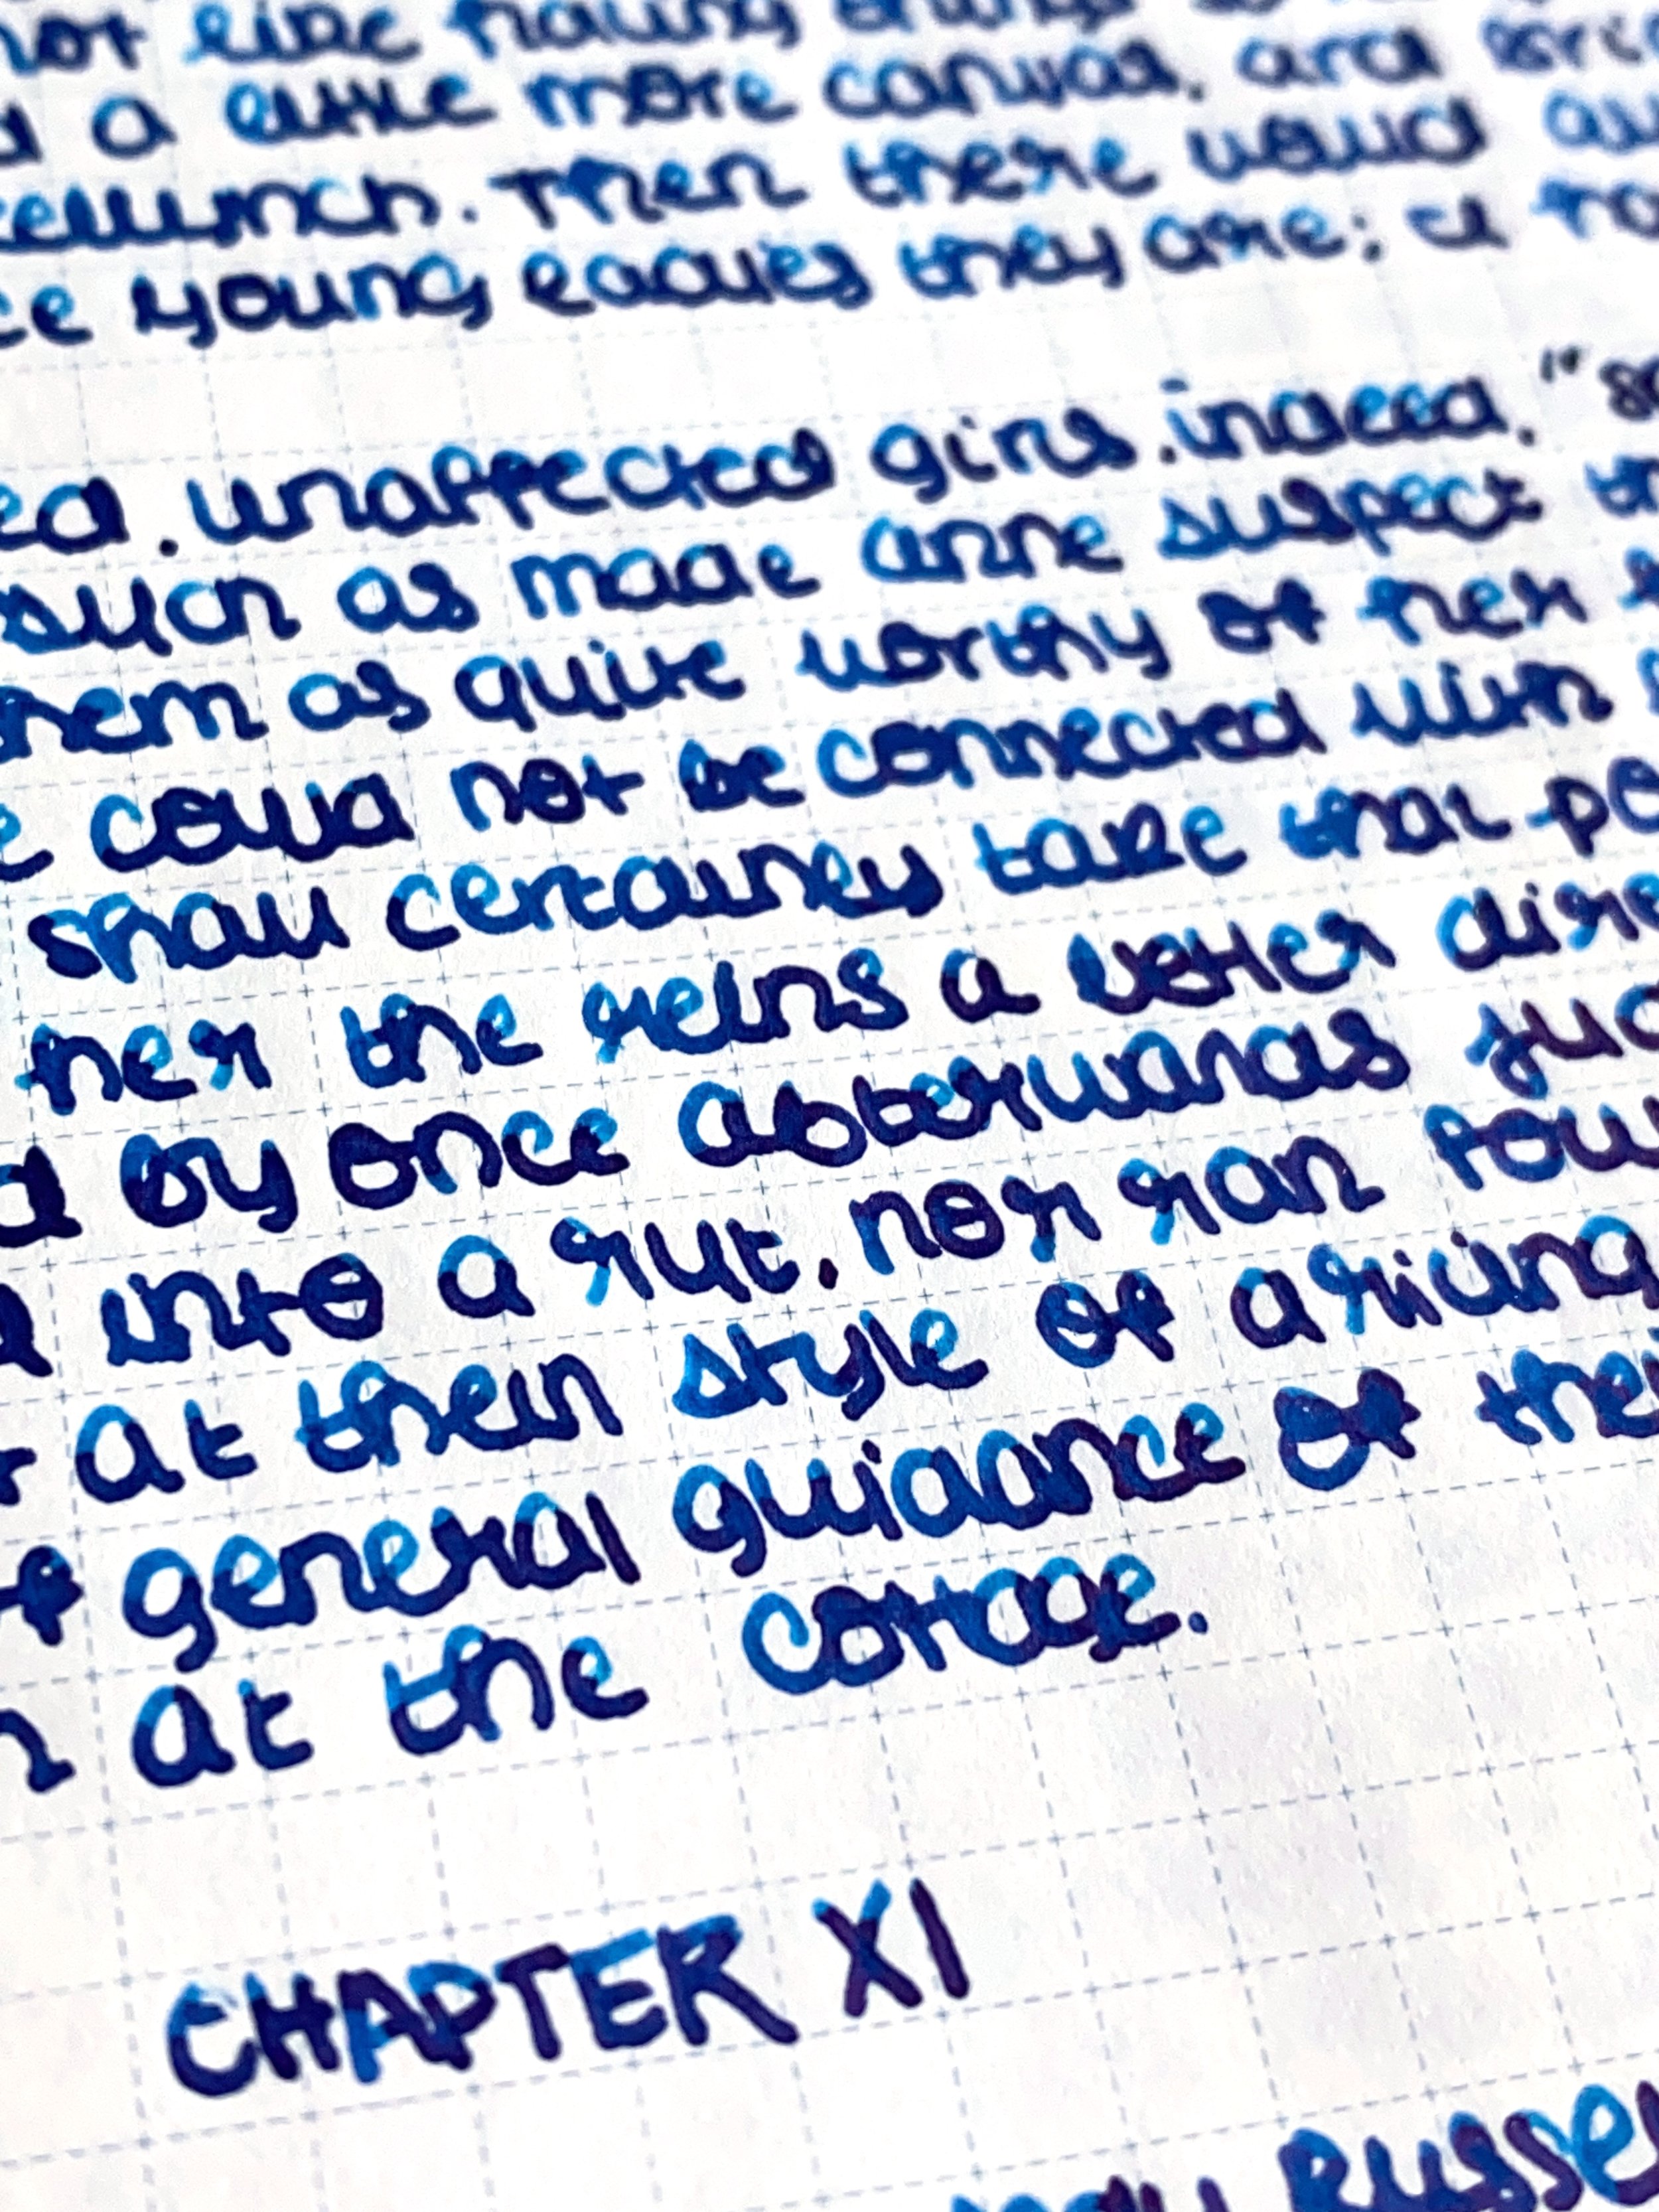 not like having things
a little more canvas, and
Kellynch. Then there would
young ladies they are; I
unaffected girls, indeed,"
such as made Anne suspect
them as quite worthy of her
could not be connected with
shall certainly take that
her the reins a better dire
by once afterwards jud
into a rut, nor ran foul
at their style of driving
general guidance of thei
at the cottage.
CHAPTER XI
Russe